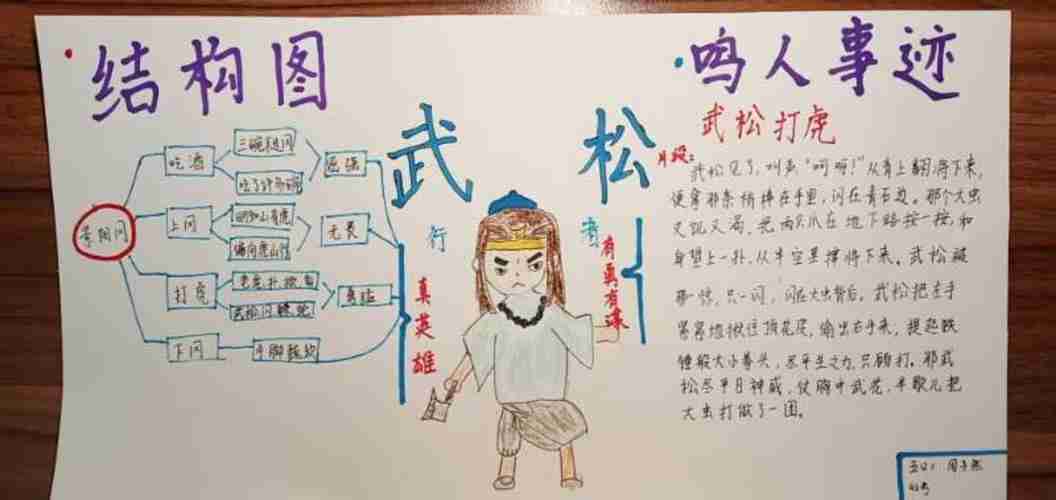 结构图
景阳冈
吃酒
三碗不过冈
吃了许多碗
倔强
上冈
明知山有虎
偏向虎山行
无畏
打虎
老虎扑掀剪
武松闪躲
勇猛
下冈
手脚酥软
武松
行者
真英雄
有勇有谋
鸣人事迹
武松打虎
片段:
武松见了,叫声“呵呀!”从青上翻将下来,
便拿那条梢棒在手里,闪在青石边。那个大虫
又饥又渴,把两只爪在地下略按一按,和
身望上一扑,从半空里撺将下来。武松被
那一惊,
只一闪,闪在大虫背后。武松把左手
紧紧地揪住顶花皮,偷出右手来,提起铁
锤般大小拳头,尽平生之力,只顾打。那武
松尽平日神威,仗胸中武艺,半歇儿把
大虫打做了一团。